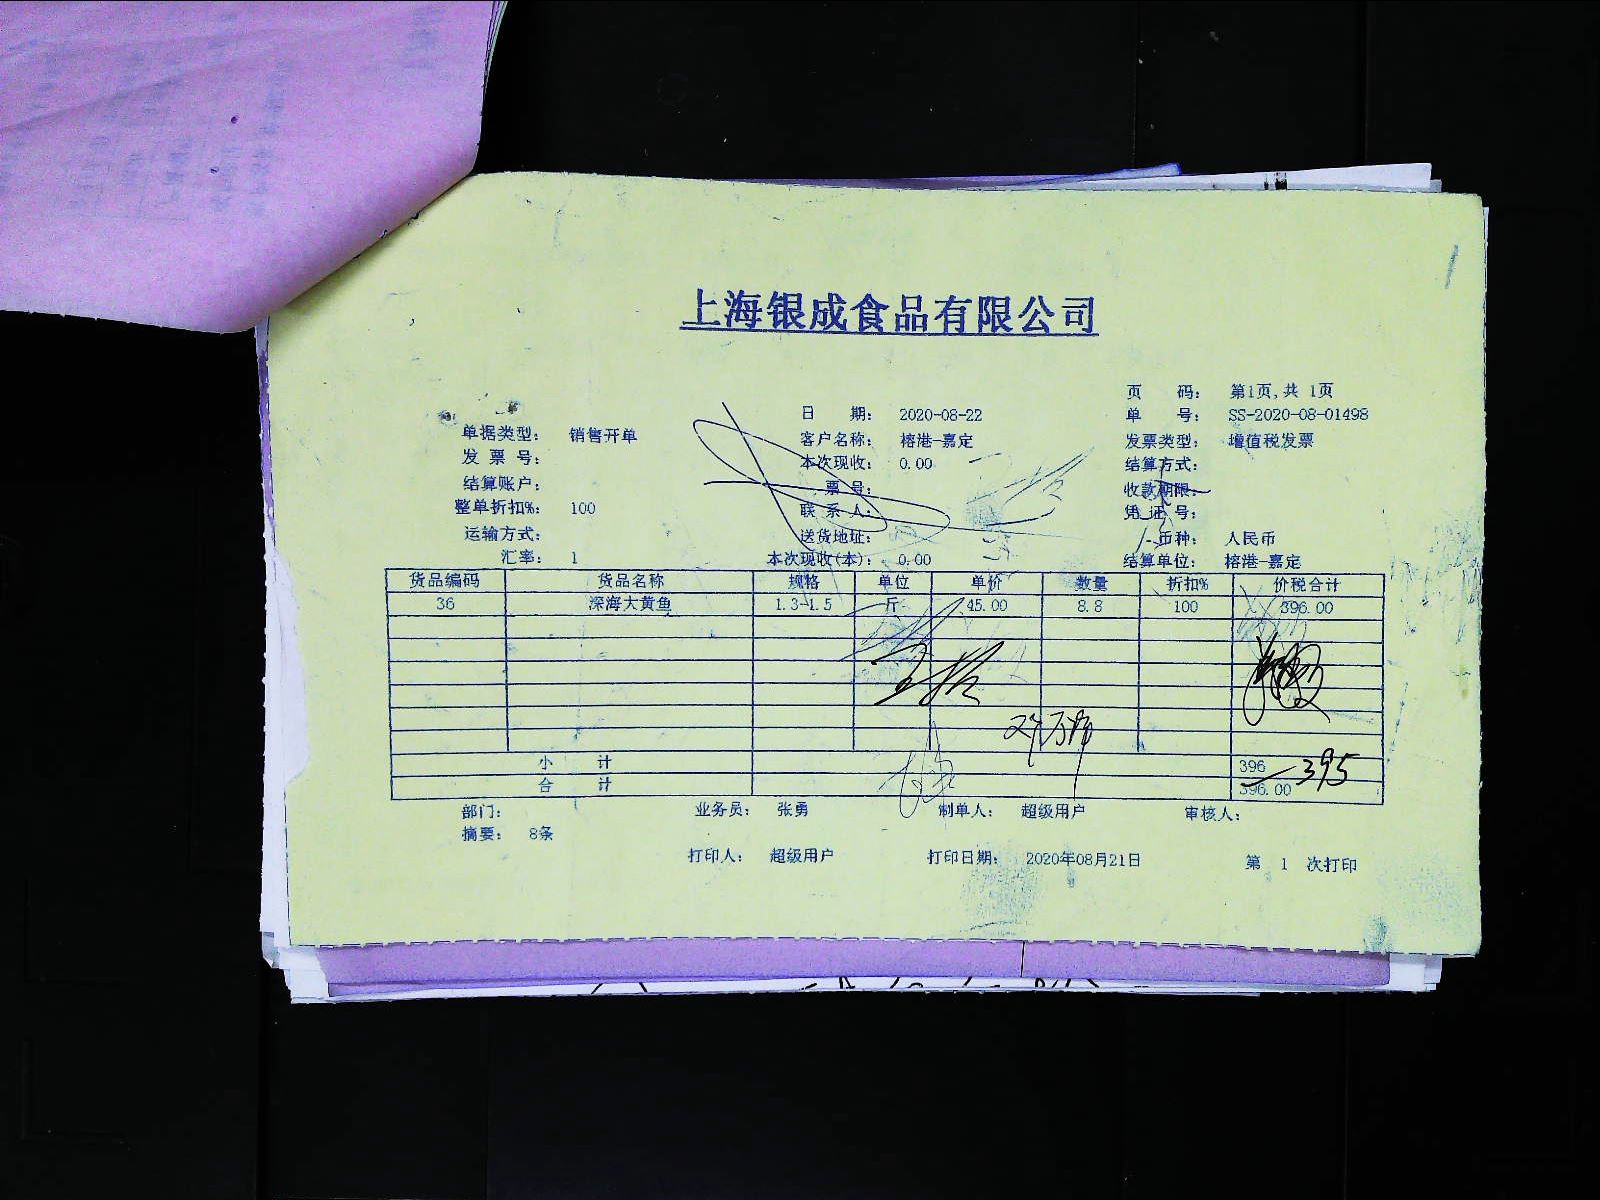 上海银成食品有限公司
页 码: 第1页,共 1页
日 期: 2020-08-22 单 号: SS-2020-08-01498
单据类型: 销售开单 客户名称: 榕港-嘉定 发票类型: 增值税发票
发 票 号: 本次现收: 0.00 结算方式:
结算账户: 票 号: 收款期限:
整单折扣%: 100 联 系 人: 凭 证 号:
运输方式: 送货地址: 币种: 人民币
汇率: 1 本次现收(本): 0.00 结算单位: 榕港-嘉定
货品编码 货品名称 规格 单位 单价 数量 折扣% 价税合计
36 深海大黄鱼 1.3-1.5 斤 45.00 8.8 100 396.00
小 计 396 395
合 计 396.00
部门: 业务员: 张勇 制单人: 超级用户 审核人:
摘要: 8条
打印人: 超级用户 打印日期: 2020年08月21日 第 1 次打印